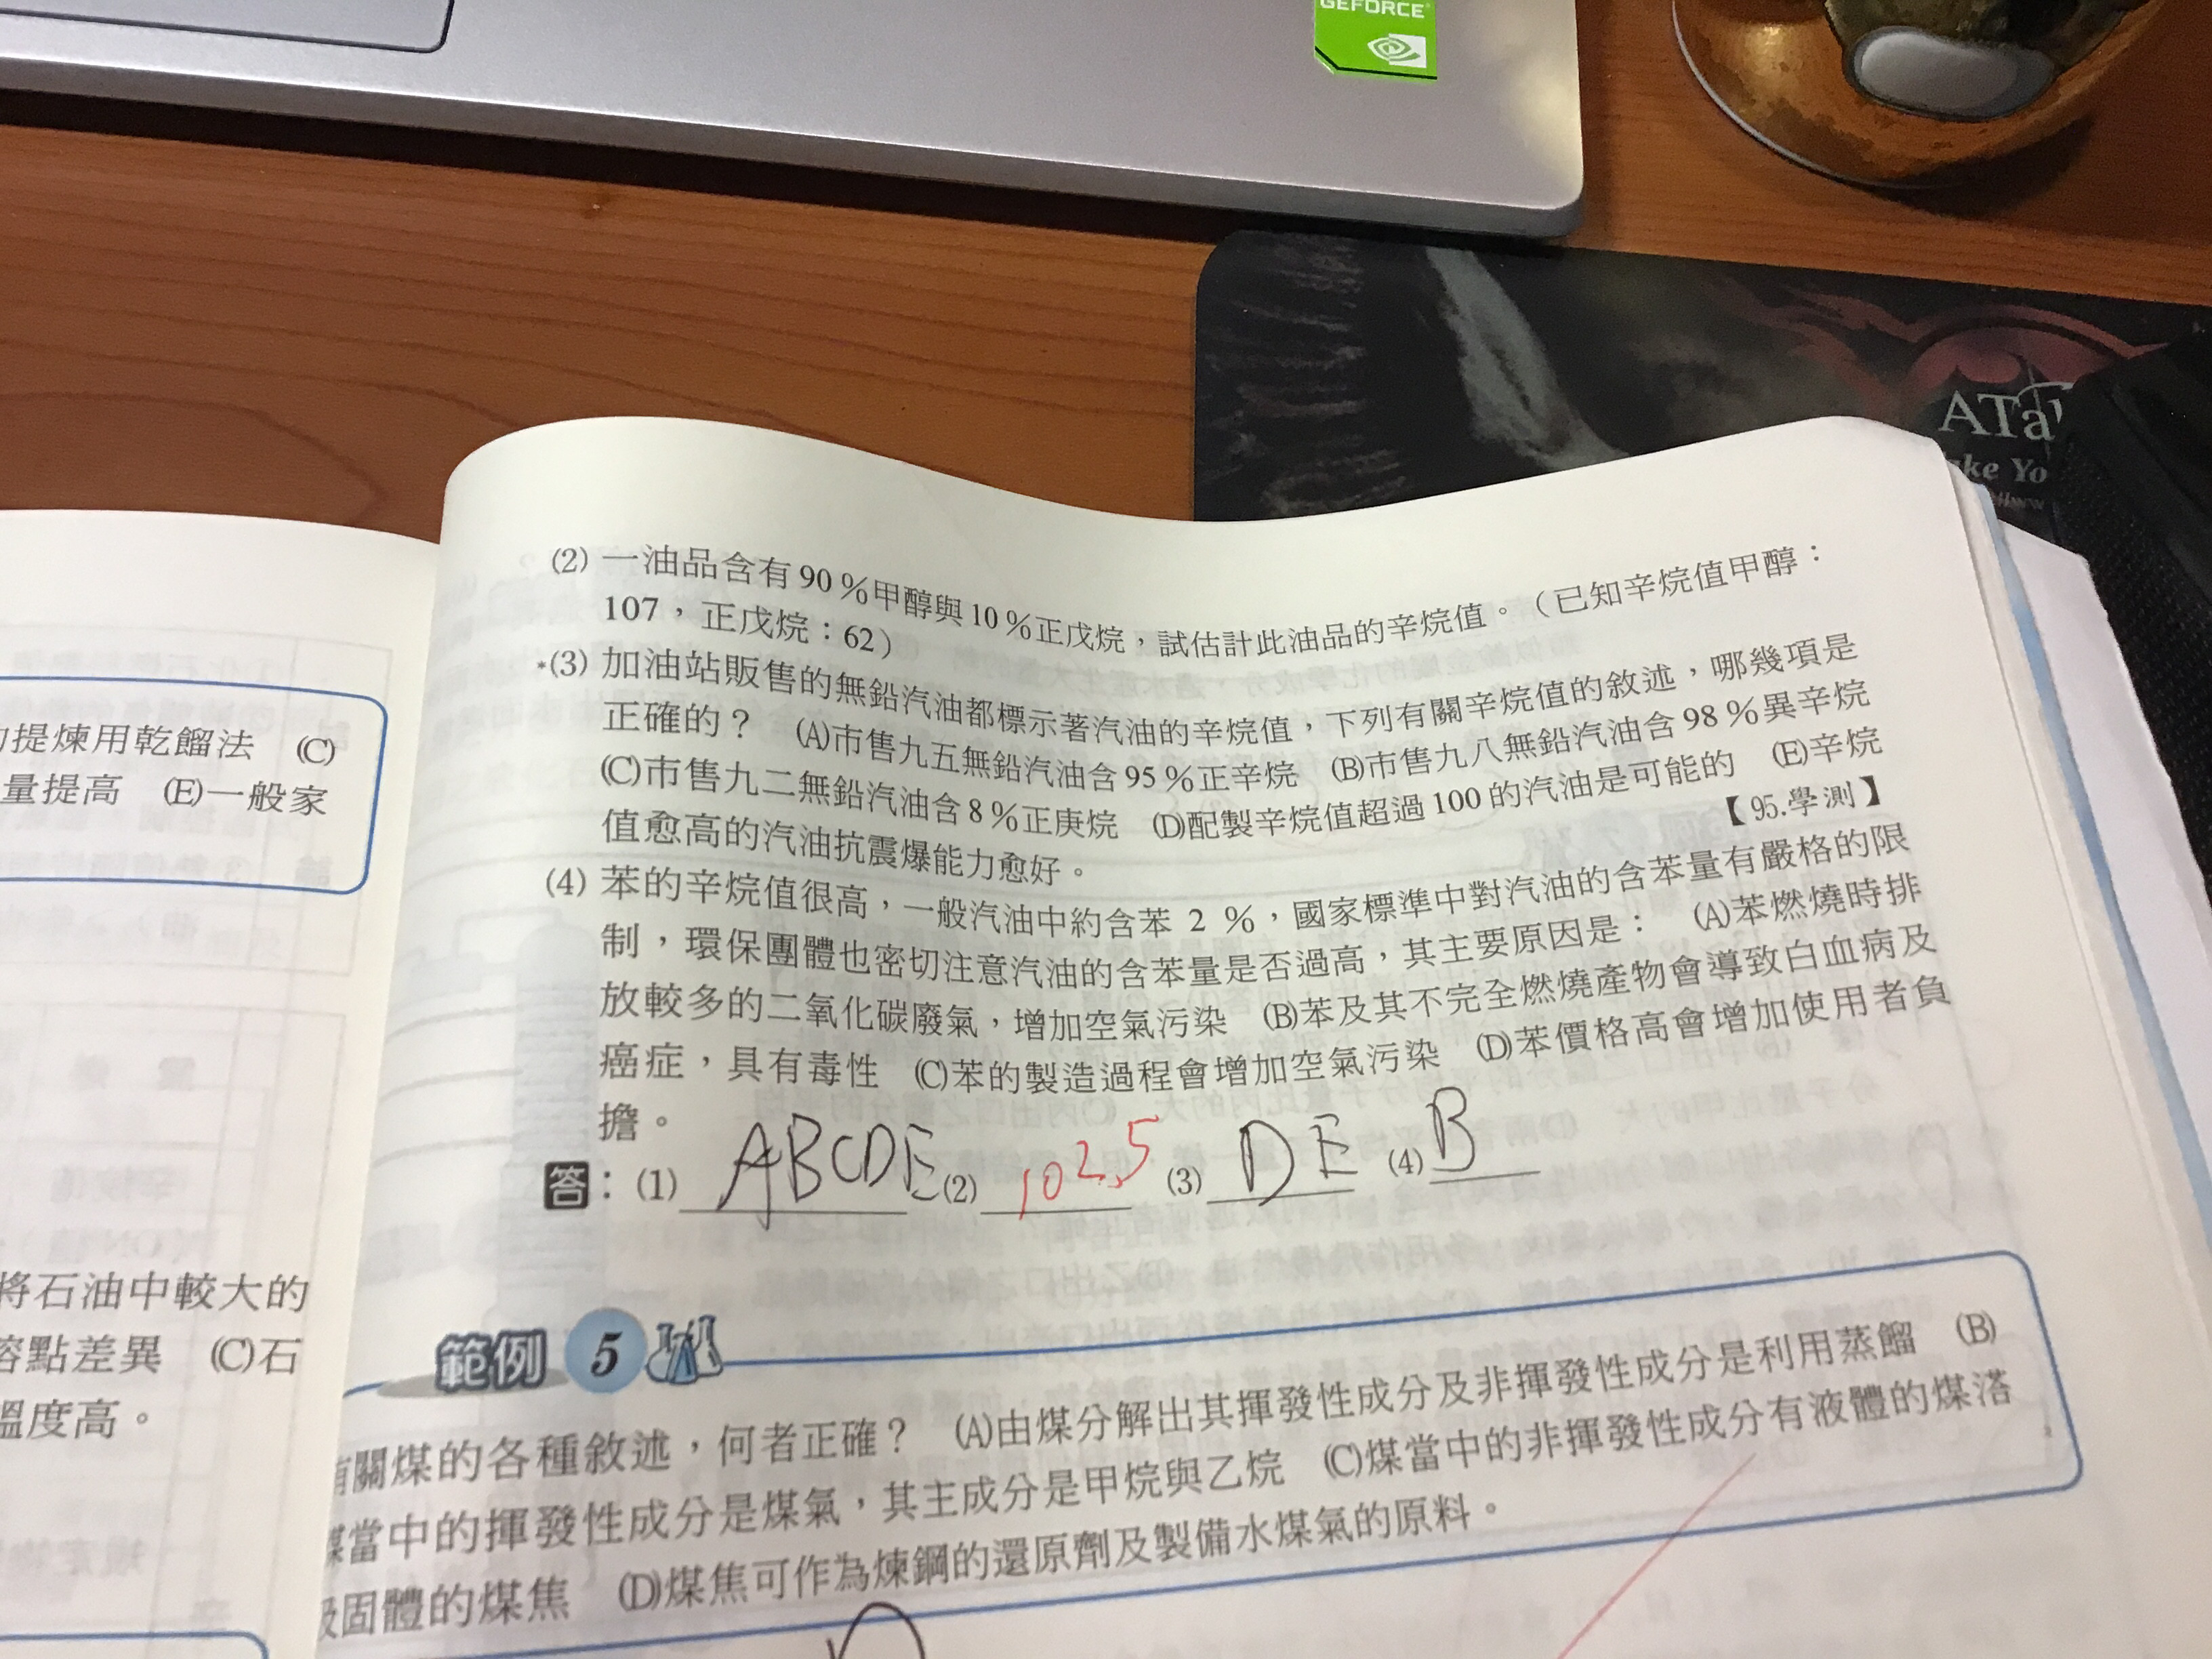 GEFORCE
ATa
ke Yo
(2) 一油品含有90%甲醇與10%正戊烷，試估計此油品的辛烷值。（已知辛烷值甲醇：
107，正戊烷：62)
*(3) 加油站販售的無鉛汽油都標示著汽油的辛烷值，下列有關辛烷值的敘述，哪幾項是
正確的？ (A)市售九五無鉛汽油含95%正辛烷 (B)市售九八無鉛汽油含98%異辛烷
(C)市售九二無鉛汽油含8%正庚烷 (D)配製辛烷值超過100的汽油是可能的 (E)辛烷
值愈高的汽油抗震爆能力愈好。 【95.學測】
(4) 苯的辛烷值很高，一般汽油中約含苯 2 %，國家標準中對汽油的含苯量有嚴格的限
制，環保團體也密切注意汽油的含苯量是否過高，其主要原因是： (A)苯燃燒時排
放較多的二氧化碳廢氣，增加空氣污染 (B)苯及其不完全燃燒產物會導致白血病及
癌症，具有毒性 (C)苯的製造過程會增加空氣污染 (D)苯價格高會增加使用者負
擔。
答：(1) ABCDE (2) 102.5 (3) DE (4) B
範例 5
有關煤的各種敘述，何者正確？ (A)由煤分解出其揮發性成分及非揮發性成分是利用蒸餾 (B)
煤當中的揮發性成分是煤氣，其主成分是甲烷與乙烷 (C)煤當中的非揮發性成分有液體的煤溚
及固體的煤焦 (D)煤焦可作為煉鋼的還原劑及製備水煤氣的原料。
提煉用乾餾法 (C)
量提高 (E)一般家
將石油中較大的
溶點差異 (C)石
溫度高。